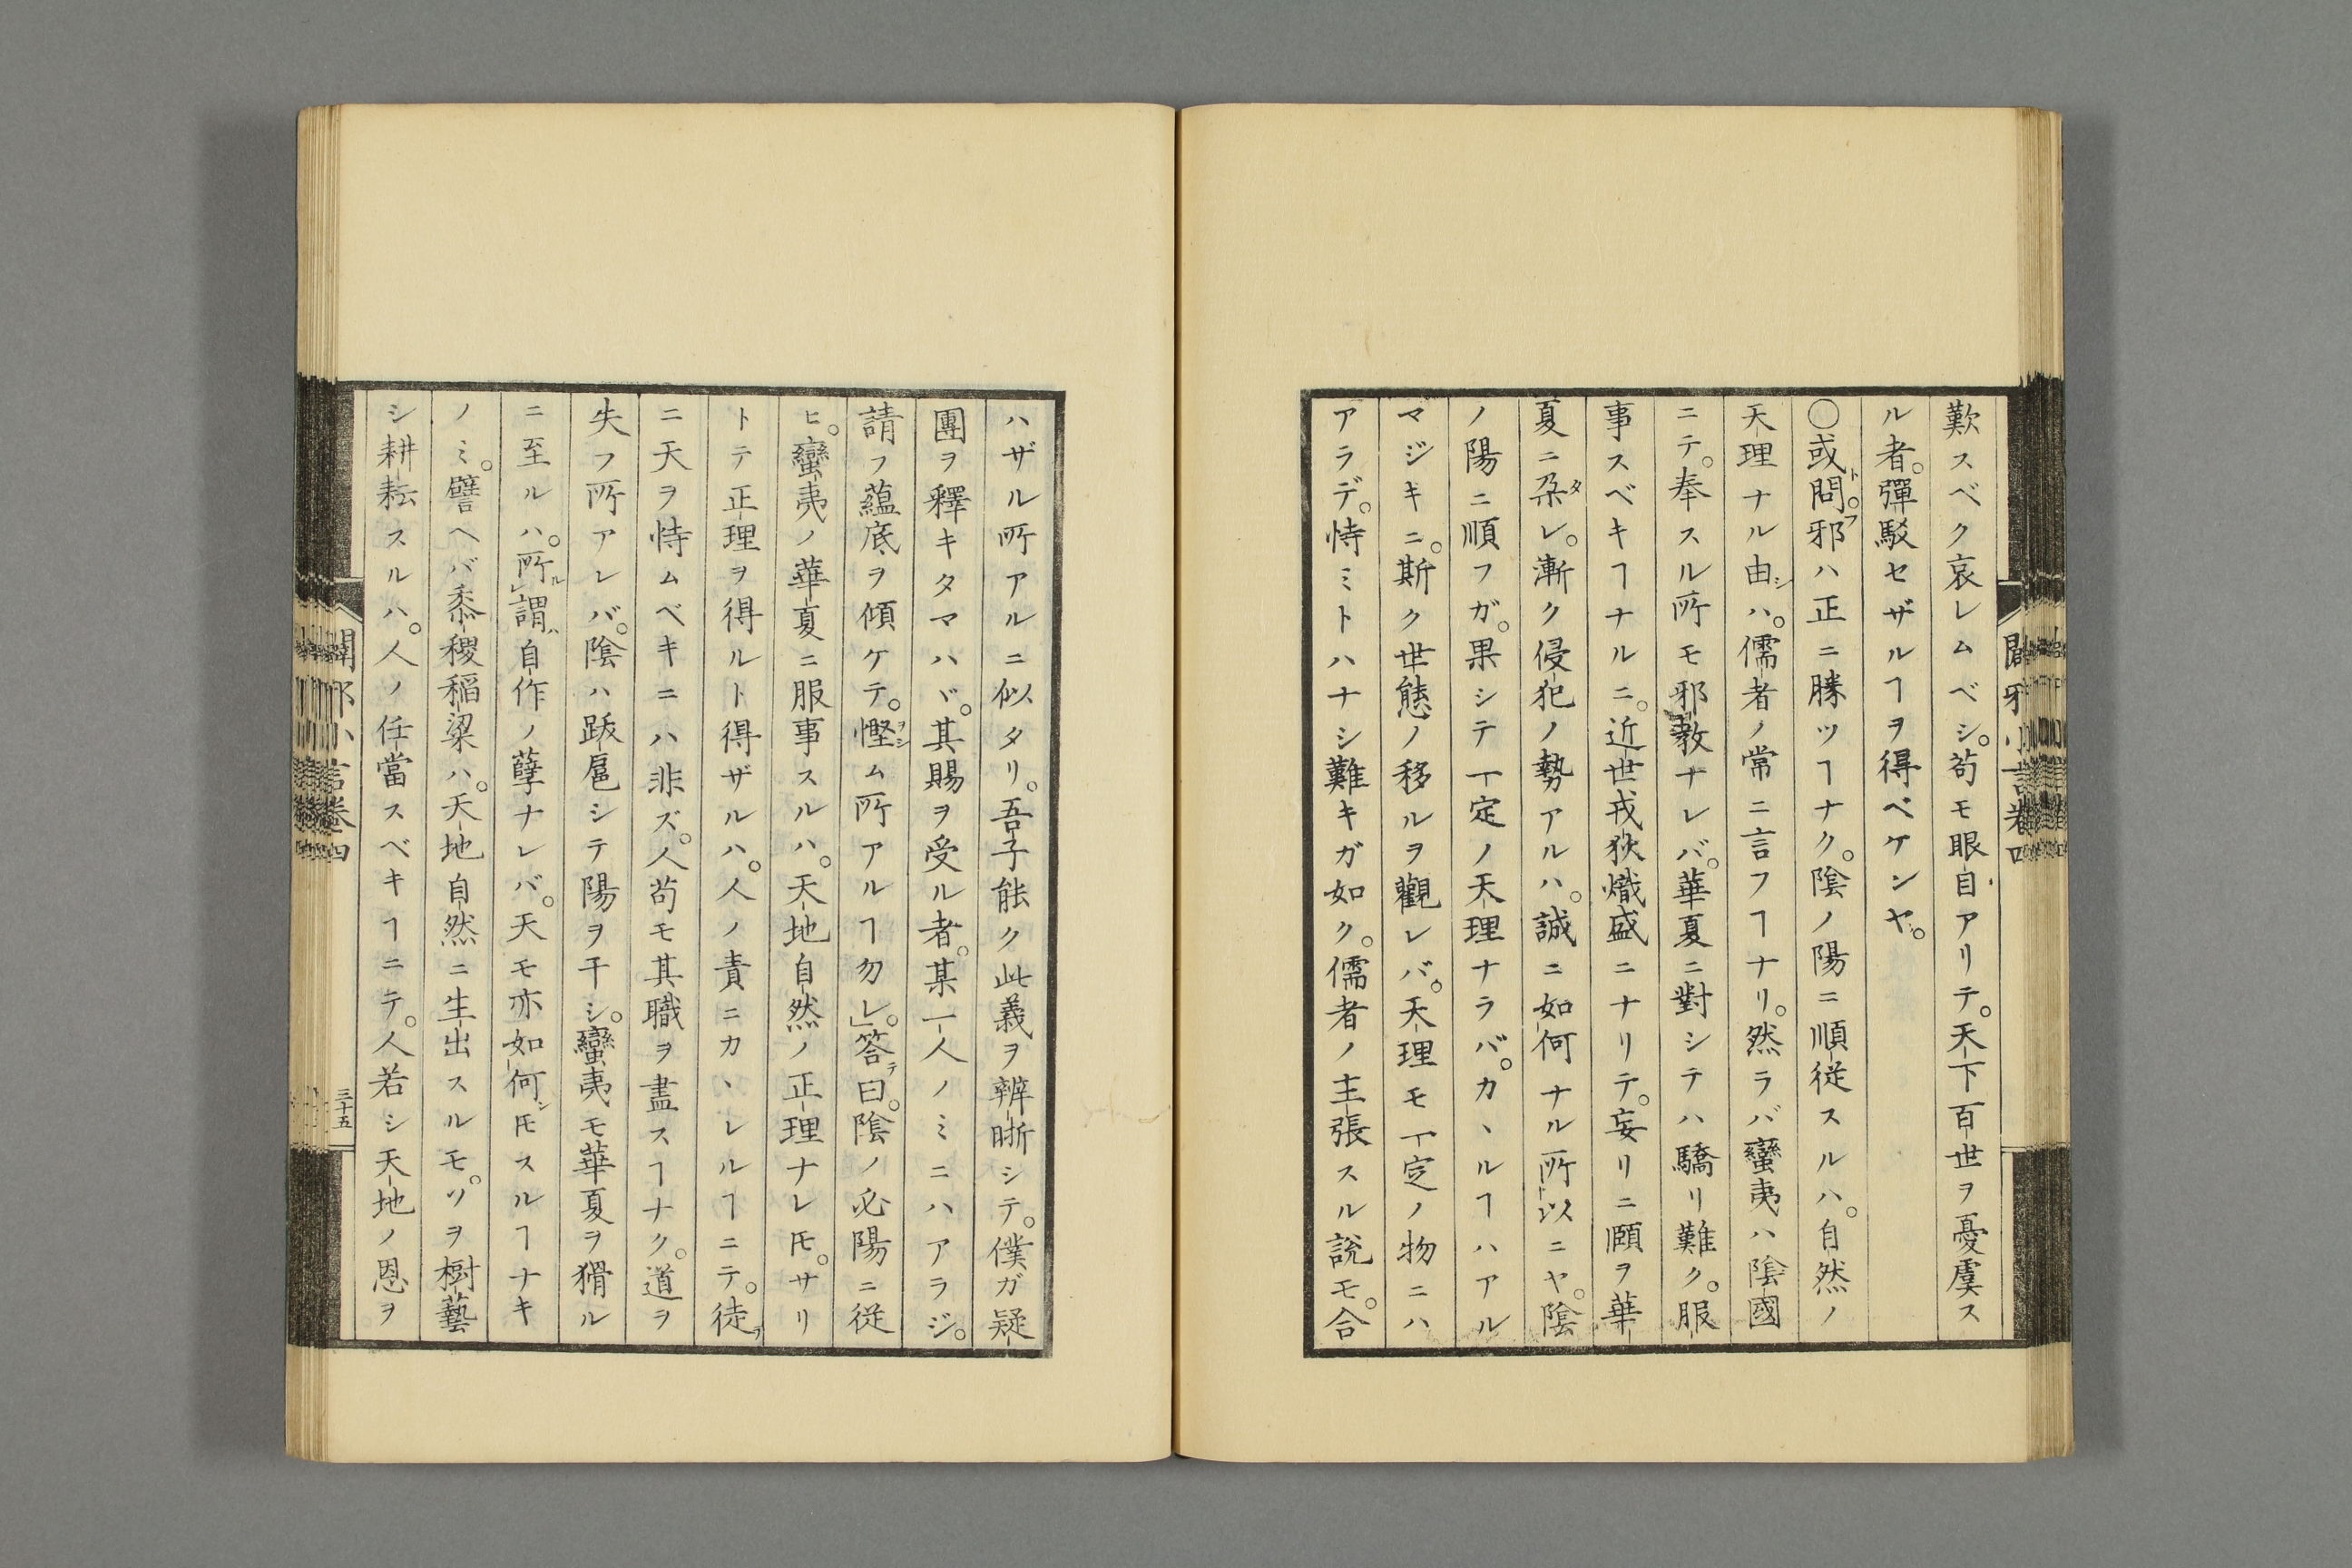 歎スベク哀レムベシ。苟モ眼目アリテ。天下百世ヲ憂虞ス
ル者。彈駁セザルヿヲ得ベケンヤ。
〇或問。邪ハ正ニ勝ツヿナク。陰ノ陽ニ順從スルハ。自然ノ
天理ナル由ハ。儒者ノ常ニ言フヿナリ。然ラバ蠻夷ハ陰國
ニテ。奉スル所モ邪教ナレバ。華夏ニ對シテハ驕リ難ク。服
事スベキヿナルニ。近世戎狄熾盛ニナリテ。妄リニ頤ヲ華
夏ニ朶レ。漸ク侵犯ノ勢アルハ。誠ニ如何ナル所以ニヤ。陰
ノ陽ニ順フガ。果シテ一定ノ天理ナラバ。カヽルヿハアル
マジキニ。斯ク世態ノ移ルヲ觀レバ。天理モ一定ノ物ニハ
アラデ。恃ミトハナシ難キガ如ク。儒者ノ主張スル說モ。合
ハザル所アルニ似タリ。吾子能ク此義ヲ辨晰シテ。僕ガ疑
團ヲ釋キタマハヾ。其賜ヲ受ル者。某一人ノミニハアラジ。
請フ蘊底ヲ傾ケテ。慳ム所アルヿ勿レ」。答曰。陰ノ必陽ニ從
ヒ。蠻夷ノ華夏ニ服事スルハ。天地自然ノ正理ナレ𪜈。サリ
トテ正理ヲ得ルト得ザルハ。人ノ責ニカヽレルヿニテ。徒
ニ天ヲ恃ムベキニハ非ズ。人苟モ其職ヲ盡スヿナク。道ヲ
失フ所アレバ。陰ハ跋扈シテ陽ヲ干シ。蠻夷モ華夏ヲ猾ル
ニ至ルハ。所謂自作ノ孽ナレバ。天モ亦如何𪜈スルヿナキ
ノミ。譬ヘバ黍稷稻粱ハ。天地自然ニ生出スルモ。ソヲ樹藝
シ耕耘スルハ。人ノ任當スベキヿニテ。人若シ天地ノ恩ヲ
闢邪小言卷四
三十五